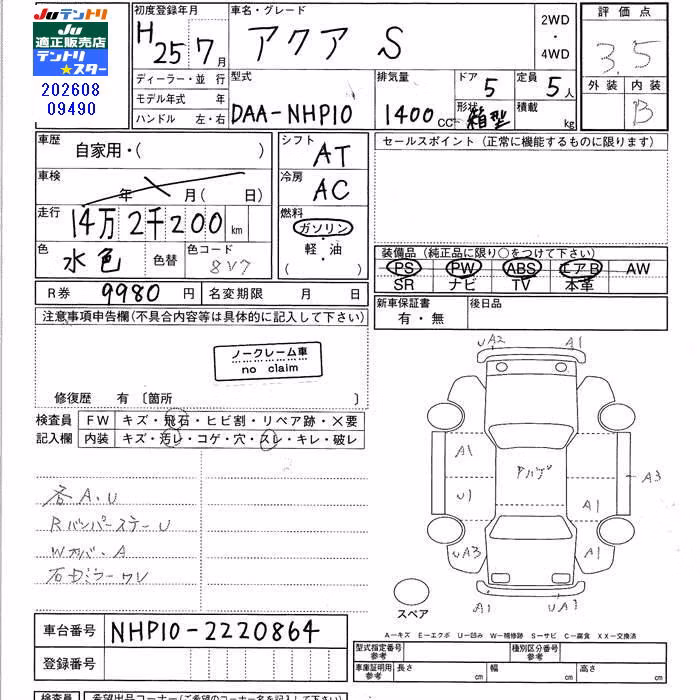 JUテントリ
JU
適正販売店
テントリ
★スター
202608
09490
初度登録年月
H 25年 7月
車名・グレード
アクア S
2WD
・
4WD
評価点
3.5
外装 内装
B
ディーラー・並行
モデル年式 年
ハンドル 左・右
型式
DAA-NHP10
排気量
1400cc
ドア
5
形状
箱型
定員
5人
積載
kg
車歴
自家用・( )
シフト
AT
車検
年 月( 日)
冷房
AC
走行
14万2千200km
燃料
ガソリン
・
軽・油
( )
色
水色
色替
色コード
8V7
R券 9980円
名変期限 月 日
セールスポイント(正常に機能するものに限ります)
装備品(純正品に限り○をつけて下さい)
PS PW ABS エアB AW
SR ナビ TV 本革
新車保証書
有・無
後日品
注意事項申告欄(不具合内容等は具体的に記入して下さい)
ノークレーム車
no claim
修復歴 有〔箇所 〕
検査員
記入欄
FW キズ・飛石・ヒビ割・リペア跡・×要
内装 キズ・汚レ・コゲ・穴・スレ・キレ・破レ
各A、U
RバンパーステーU
Wカバ、A
UA2 A1
A1
U1
A3
A1
UA3
A1
A1
UA1
スペア
A-キズ E-エクボ U-凹み W-補修跡 S-サビ C-腐食 XX-交換済
車台番号 NHP10-2220864
登録番号
型式指定番号
参考
種別区分番号
参考
車庫証明用
参考
長さ cm 幅 cm 高さ cm
検査員
希望出品コーナー(ご希望のコーナー名を記入下さい)